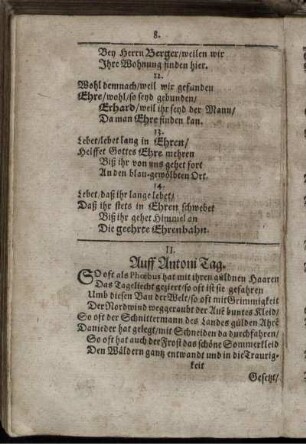 8.
Bey Herrn Berger/weilen wir
Ihre Wohnung finden hier.
12.
Wohl demnach/weil wir gefunden
Ehre/wohl/so seyd gebunden/
Erhard/weil ihr seyd der Mann/
Da man Ehre finden kan.
13.
Lebet/lebet lang in Ehren/
Helffet Gottes Ehre mehren
Biß ihr von uns gehet fort
An den blau-gewölbten Ort.
14.
Lebet/daß ihr lange lebet/
Daß ihr stets in Ehren schwebet
Biß ihr gehet Himmel an
Die geehrte Ehrenbahn.
II.
Auff Antoni Tag.
SO oft als Phœbus hat mit ihren güldnen Haaren
Das Tageliecht gezieret/so oft ist sie gefahren
Umb diesen Bau der Welt/so oft mit Grimmigkeit
Der Nordwind weggeraubt der Aue buntes Kleid/
So oft der Schnittermann des Landes gülden Ähre
Danieder hat gelegt/mit Schneiden da durchfahren/
So oft hat auch der Frost das schöne Sommerkleid
Den Wäldern gantz entwandt und in die Traurig-
keit
Gesetzt/